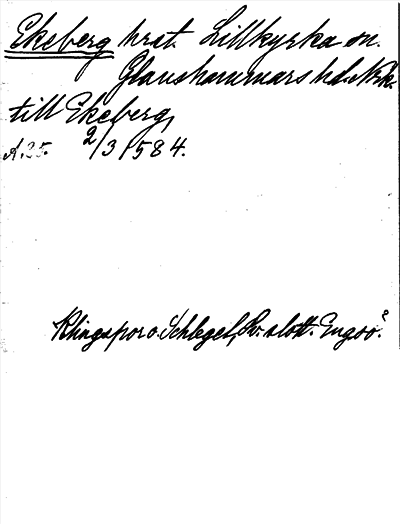 Ekeberg hrst. Lillkyrka sn.
Glanshammars hd. Nrk.
till Ekeberg,
A.25. 2/3 1584.
Klingspor o. Schlegel, Sv. slott. Engsö.